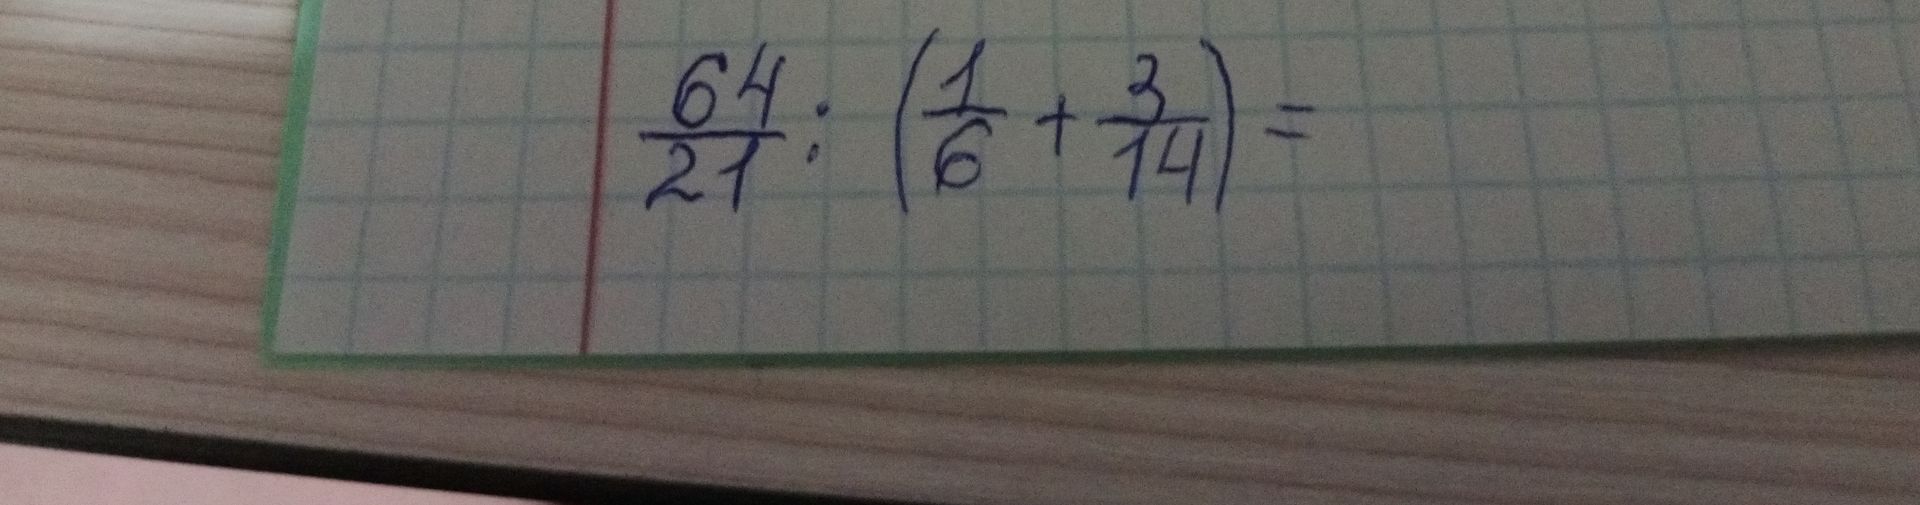 64/21 : (1/6 + 3/14) =